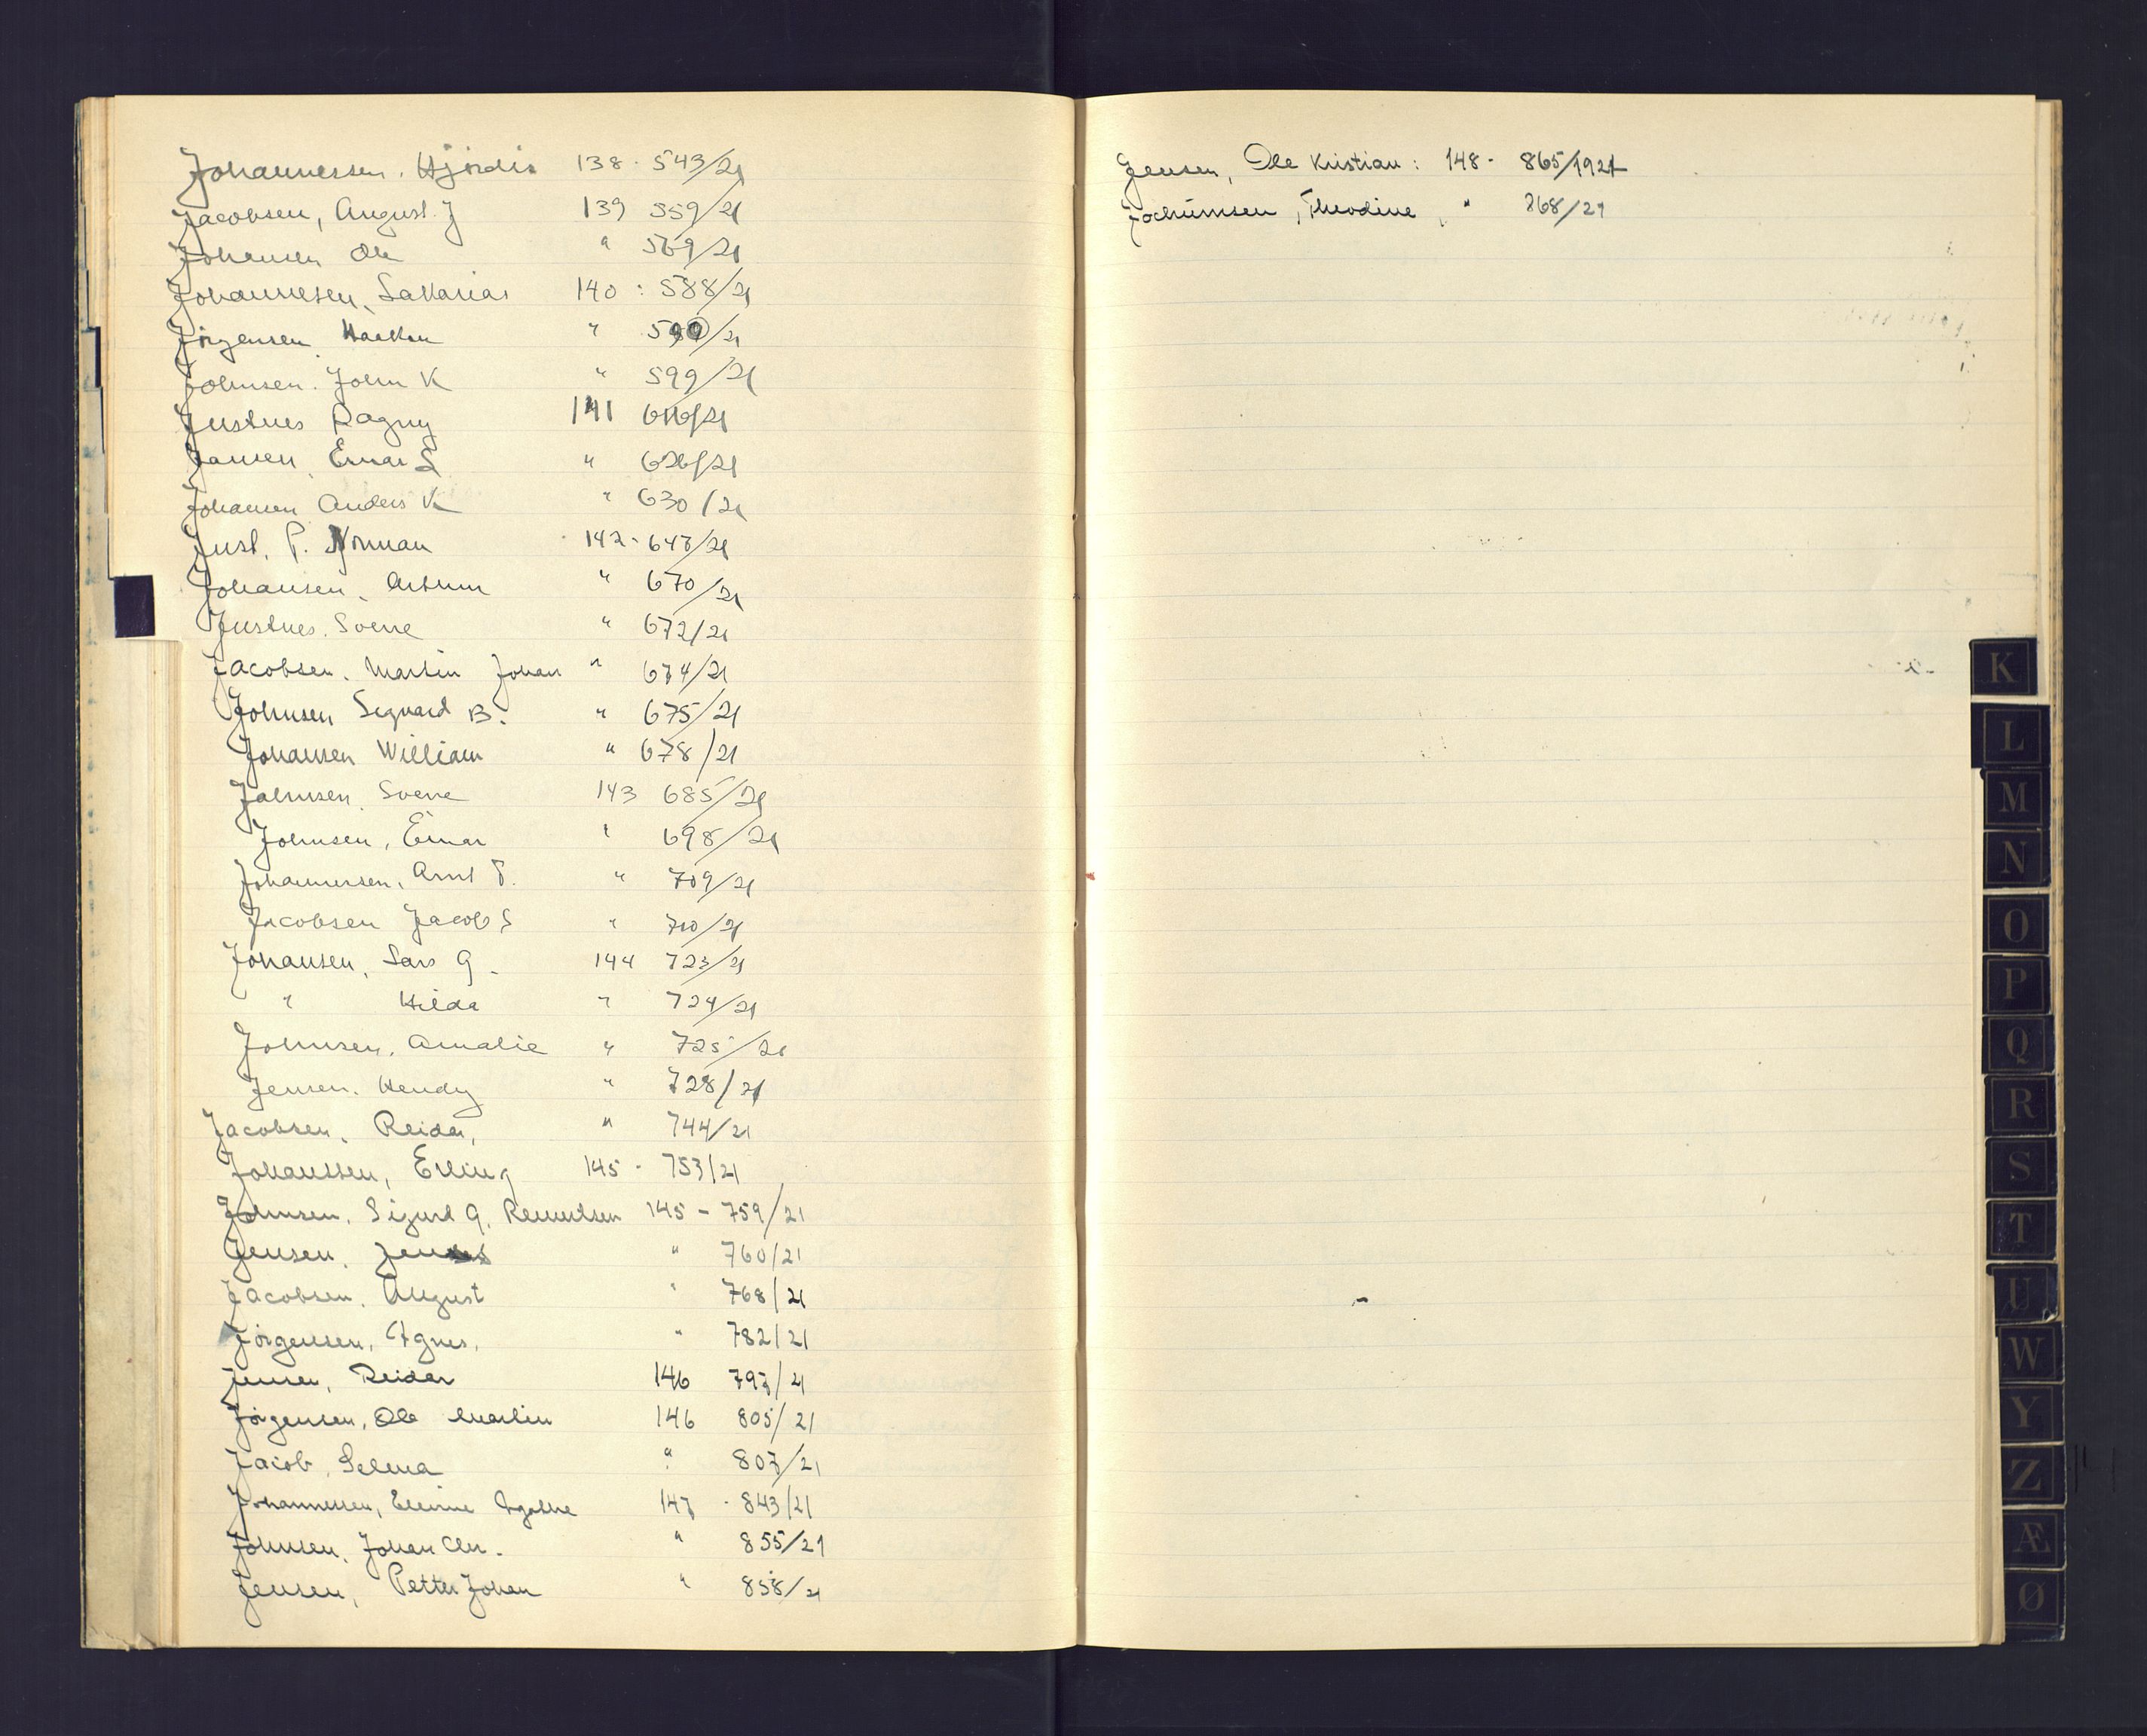 Johannessen. Hjördis 138 - 543/21
Jacobsen, August. J 139 559/21
Johansen Ole " 569/21
Johannesen, Sakarias 140 : 588/21
Jörgensen Haakon " 590/21
Johnsen. John K " 599/21
Justnes Ragny 141 616/21
Jansen, Einar L " 626/21
Johansen Anders K " 630/21
Just, P. Norman 142 - 647/21
Johansen, Arthur " 670/21
Justnes. Sverre " 672/21
Jacobsen. Martin Johan " 674/21
Johnsen Sigvard B. " 675/21
Johansen William " 678/21
Johnsen, Sverre 143 685/21
Johnsen, Einar " 698/21
Johannessen, Arnt T. " 709/21
Jacobsen Jacob S " 710/21
Johansen, Lars G. 144 723/21
" Hilda " 724/21
Johnsen. Amalie " 725/21
Jensen. Hendy " 728/21
Jacobsen, Reidar, " 744/21
Johanssen, Erling 145 - 753/21
Johnsen, Sigurd G. 145 - 759/21
Jensen, " 760/21
Jacobsen, August " 768/21
Jörgensen, Agnes, " 782/21
Jensen, Reidar 146 797/21
Jörgensen, Ole Martin 146 805/21
Jacob, Selma " 807/21
Johannessen, Agathe 147 - 843/21
Johnsen, Johan Chr. " 855/21
Jensen, Petter Johan " 858/21
Jensen, Ole Kristian : 148 - 865/1921
Jochumsen, Theodine, " 868/21
K
L
M
N
O
P
Q
R
S
T
U
W
Y
Z
Æ
Ø